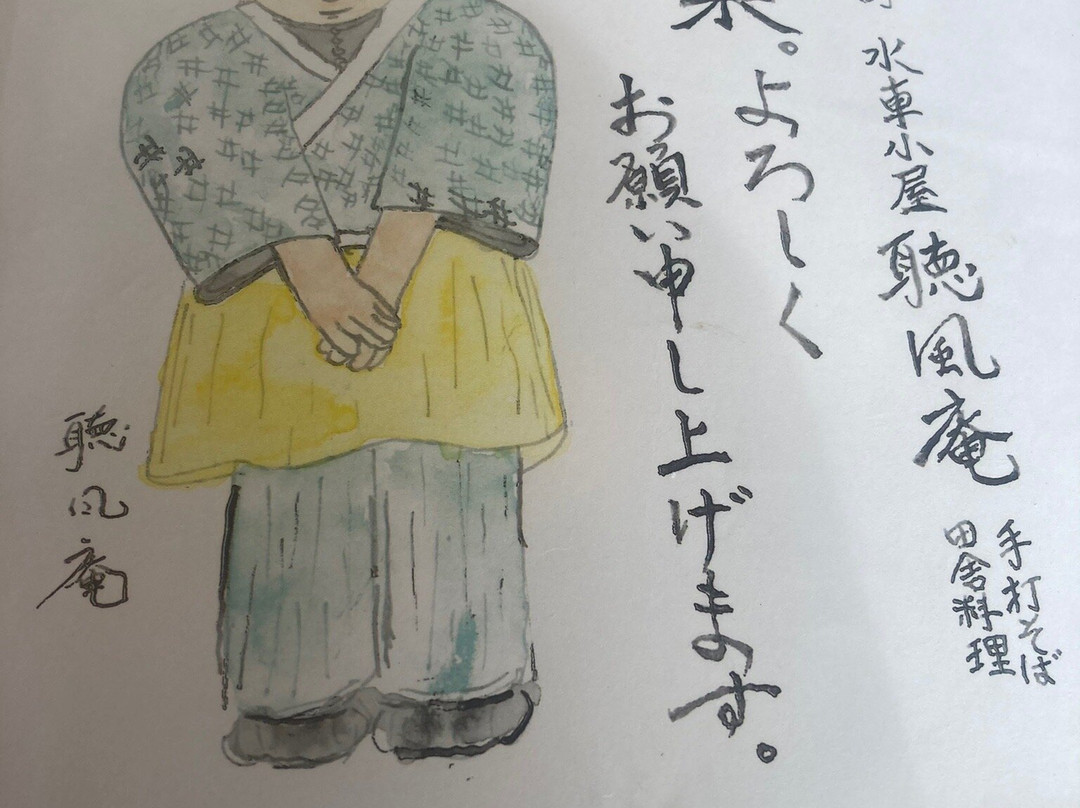 水車小屋 聴風庵
手打そば
田舎料理
。よろしく
お願い申し上げます。
聴風庵